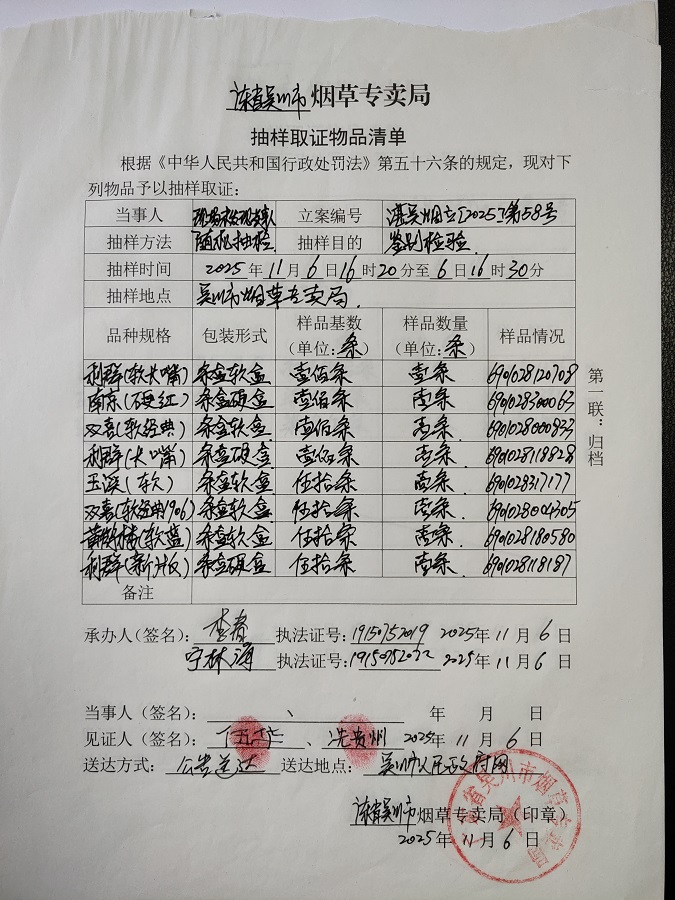 广东省吴川市烟草专卖局
抽样取证物品清单
根据《中华人民共和国行政处罚法》第五十六条的规定，现对下
列物品予以抽样取证：
当事人 现场未发现当事人 立案编号 湛吴烟立[2025]第58号
抽样方法 随机抽检 抽样目的 鉴别检验
抽样时间 2025年11月6日16时20分至6日16时30分
抽样地点 吴川市烟草专卖局
品种规格 包装形式 样品基数（单位:条） 样品数量（单位:条） 样品情况
利群(软大嘴) 条盒软盒 壹佰条 壹条 6901028120708
南京(硬红) 条盒硬盒 壹佰条 壹条 6901028300063
双喜(软经典) 条盒软盒 壹佰条 壹条 6901028000833
利群(大嘴) 条盒硬盒 壹佰条 壹条 6901028118828
玉溪(软) 条盒软盒 伍拾条 壹条 6901028317177
双喜(软经典1906) 条盒软盒 伍拾条 壹条 6901028004305
黄鹤楼(软蓝) 条盒软盒 伍拾条 壹条 6901028180580
利群(新版) 条盒硬盒 伍拾条 壹条 6901028118187
备注
第一联：归档
承办人（签名）： 李春 执法证号:19150752019 2025年11月6日
宁林海 执法证号:191507520 2025年11月6日
当事人（签名）： 、 年 月 日
见证人（签名）： 、冼贵州 2025年11月6日
送达方式： 公告送达 送达地点： 吴川市人民政府网
广东省吴川市烟草专卖局（印章）
2025年11月6日
广东省吴川市烟草专卖局